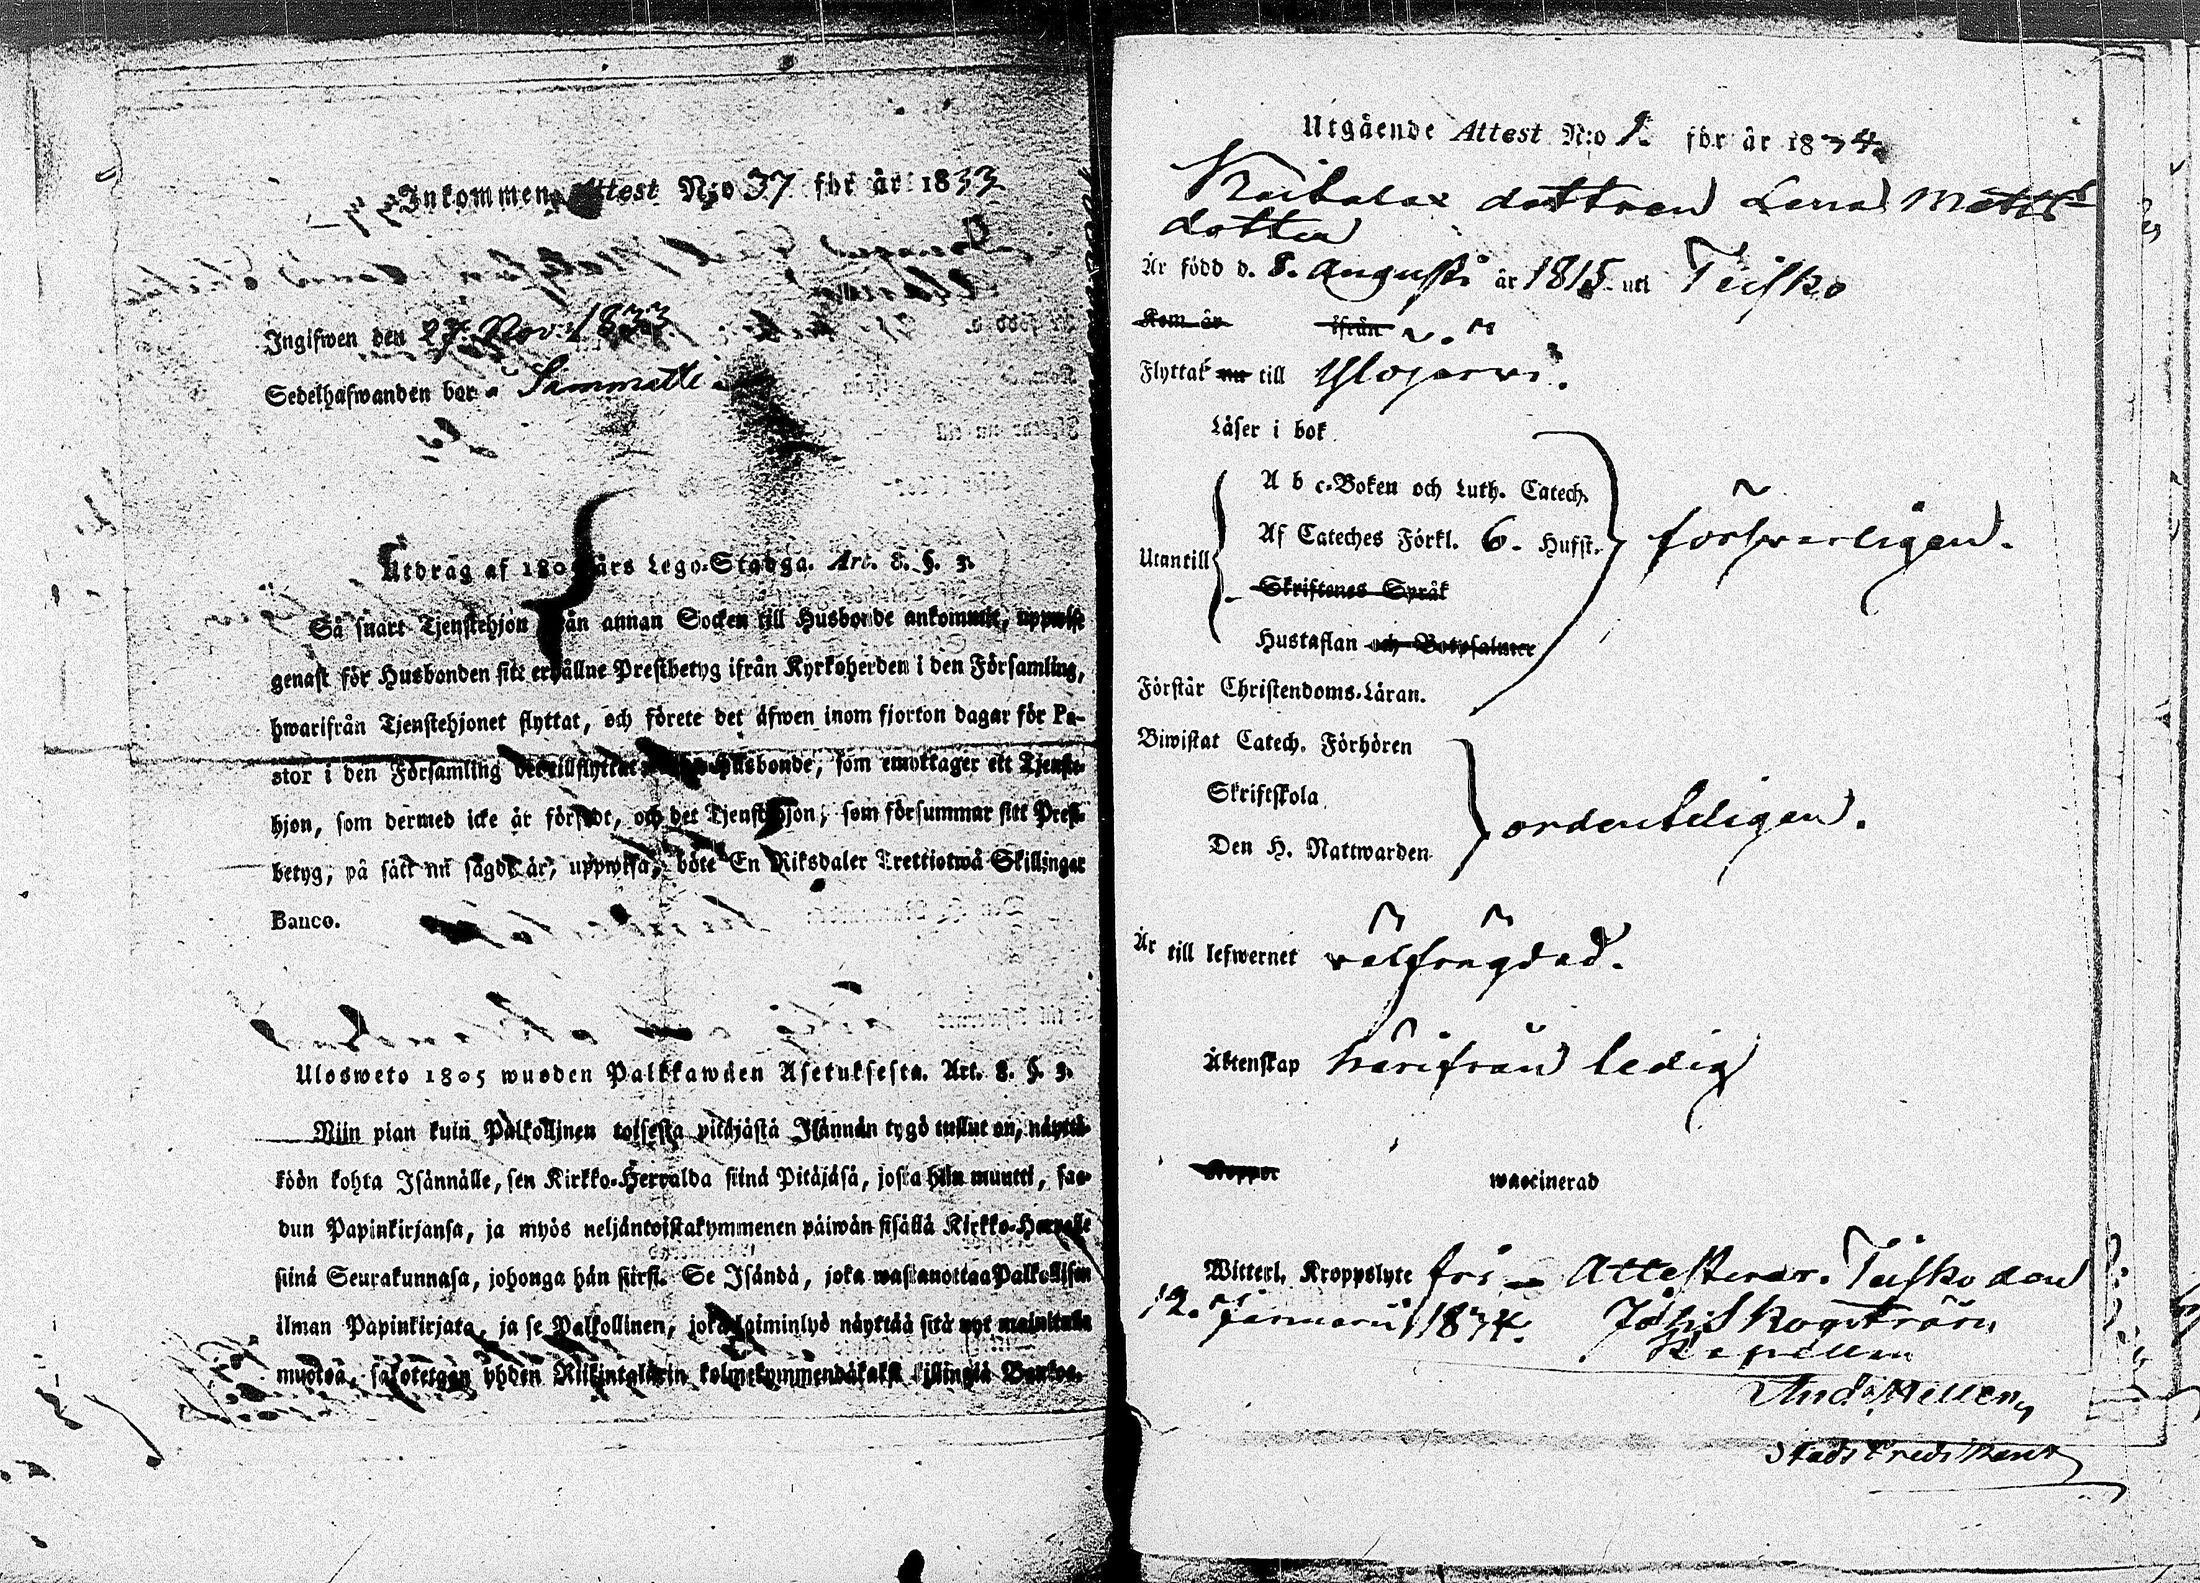 Inkommen Attest N:o 37 för år 1833
Ingifwen den 27 Nov: 1833
Sedelhafwanden bor i Sammatti
Utdrag af 1805 års Lego-Stadga. Art. 8. §. 3.
Så snart Tjenstehjon från annan Socken till Husbonde ankommit, uppwise
genast för Husbonden sitt erhållne Prestbetyg ifrån Kyrkoherden i den Församling,
hwarifrån Tjenstehjonet flyttat, och förete det äfwen inom fjorton dagar för Pa-
stor i den Församling det tillflyttat Husbonde, som emottager ett Tjenste-
hjon, som dermed icke är försedt, och det Tjenstehjon, som försummar sitt Prest-
betyg, på sätt nu sagdt är, uppwisa, böte En Riksdaler Trettiotwå Skillingar
Banco.
Ulosweto 1805 wuoden Palkkawäen Asetuksesta. Art. 8. §. 3.
Niin pian kuin Palkollinen toisesta pitäjästä Isännän tygö tullut on, näyttä-
köön kohta Isännälle, sen Kirkko-Herralda siinä Pitäjäsä, josta hän muutti, saa-
dun Papinkirjansa, ja myös neljäntoistakymmenen päiwän sisällä Kirkko-Herralle
siinä Seurakunnasa, johonga hän siirsi. Se Isändä, joka wastanottaa Palkollisen
ilman Papinkirjata, ja se Palkollinen, joka laiminlyö näyttää sitä nyt mainitulla
muotoa, sakotetgan yhden Riikintalarin kolmekymmendäkaksi killingiä Bankoa.
Utgående Attest N:o 1. för år 1834.
dottren Lena Matts-
dotter
Är född d. 8. Augusti år 1815 uti Teisko
Kom år ifrån
Flyttat nu till Ylöjärvi.
Läser i bok
A b c-Boken och Luth. Catech.
Utantill Af Cateches Förkl. 6. Hufst. försvarligen.
Skriftenes Språk
Hustaflan och Botpsalmer
Förstår Christendoms-Läran.
Biwistat Catech. Förhören
Skriftskola
Den H. Nattwarden ordenteligen.
Är till lefwernet välfrägdad.
Äktenskap härifrån ledig
Koppor waccinerad
Witterl. Kroppslyte fri – Attesterar. Teisko den
12. Januarii 1834. Joh: Skogström
Kapellan
And: Hellen,
Stads Predikant